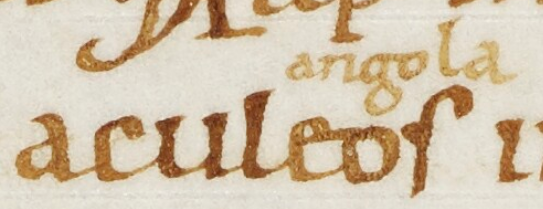 angola
aculeos